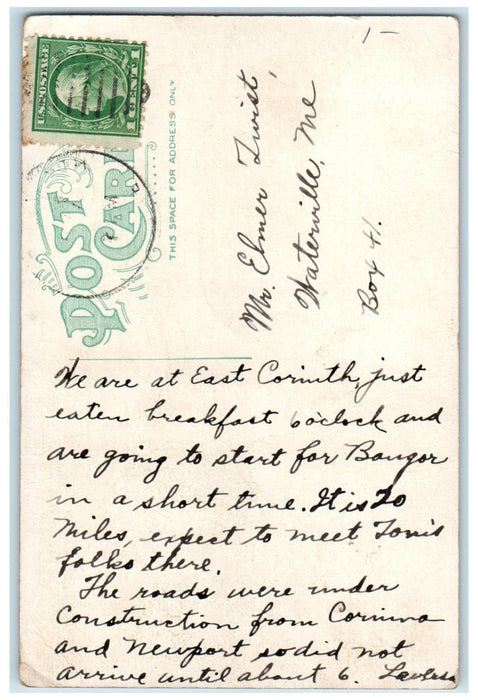 1-
U.S. POSTAGE
1 CENT 1
POST CARD
THIS SPACE FOR ADDRESS ONLY
Mr. Elmer Twist,
Waterville, Me
Box 41.
We are at East Corinth, just
eaten breakfast 6 o'clock and
are going to start for Bangor
in a short time. It is 20
miles, expect to meet Tom's
folks there.
The roads were under
construction from Corinna
and Newport so did not
arrive until about 6.